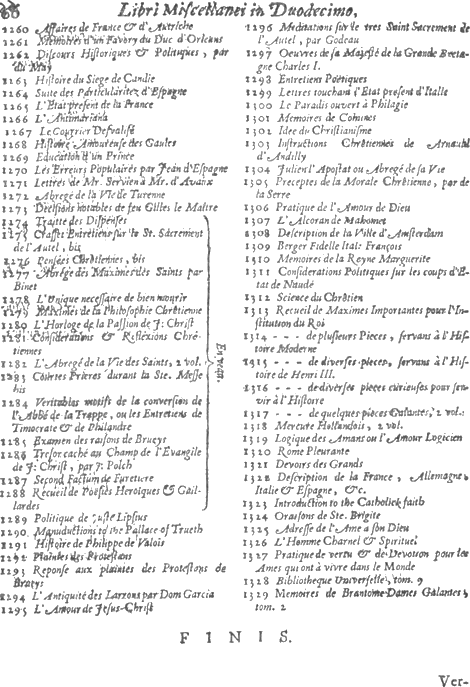 Libri Miscellanei in Duodecimo,
1260 Affaires de France & d'Autriche
1261 Memoires d'un Favory du Duc d'Orleans
1262 Discours Historiques & Politiques, par
du May
1263 Histoire du Siege de Candie
1264 Suite des Particularitez d'Espagne
1265 L'Etat present de la France
1266 L'Antimariana
1267 Le Courrier Devalisé
1268 Histoire Amoureuse des Gaules
1269 Education d'un Prince
1270 Les Erreurs Populaires par Jean d'Espagne
1271 Lettres de Mr. Servien à Mr. d'Avaux
1272 Abregé de la Vie de Turenne
1273 Decisions notables de feu Gilles le Maitre
1274 Traitte des Dispenses
1275 Crasset Entretiens sur le St. Sacrement
de l'Autel, bis
1276 Pensées Chrêtiennes, bis
1277 Abregé des Maximes des Saints par
Binet
1278 L'Unique necessaire de bien mourir
1279 Maximes de la Philosophie Chrêtienne
1280 L'Horloge de la Passion de J: Christ
1281 Considerations & Reflexions Chrê-
tiennes
1282 L'Abregé de la Vie des Saints, 2 vol.
1283 Courtes Prieres durant la Ste. Messe
bis
1284 Veritables motifs de la conversion de
l'Abbé de la Trappe, ou les Entretiens de
Timocrate & de Philandre
1285 Examen des raisons de Brueys
1286 Tresor caché au Champ de l'Evangile
de J: Christ, par J: Polch
1287 Second Factum de Furetiere
1288 Recueil de Poesies Heroiques & Gail-
lardes
1289 Politique de Juste Lipsius
1290 Manuductions to the Pallace of Trueth
1291 Histoire de Philippe de Valois
1292 Plaintes des Protestans
1293 Reponse aux plaintes des Protestans de
Brueys
1294 L'Antiquité des Larrons par Dom Garcia
1295 L'Amour de Jesus-Christ
1296 Meditations sur le tres Saint Sacrement de
l'Autel, par Godeau
1297 Oeuvres de sa Majesté de la Grande Breta-
gne Charles I.
1298 Entretiens Poëtiques
1299 Lettres touchant l'Etat present d'Italie
1300 Le Paradis ouvert à Philagie
1301 Memoires de Comines
1302 Idee du Christianisme
1303 Instructions Chrêtiennes de Arnauld
d'Andilly
1304 Julien l'Apostat ou Abregé de sa Vie
1305 Preceptes de la Morale Chrêtienne, par de
la Serre
1306 Pratique de l'Amour de Dieu
1307 L'Alcoran de Mahomet
1308 Description de la Ville d'Amsterdam
1309 Berger Fidelle Ital: François
1310 Memoires de la Reyne Marguerite
1311 Considerations Politiques sur les coups d'E-
tat de Naudé
1312 Science du Chrêtien
1313 Recueil de Maximes Importantes pour l'In-
stitution du Roi
1314 - - - de plusieurs Pieces, servans à l'His-
toire Moderne
1315 - - - de diverses pieces, servans à l'His-
toire de Henri III.
1316 - - - de diverses pieces curieuses pour ser-
vir à l'Histoire
1317 - - - de quelques pieces Galantes, 2 vol.
1318 Mercure Hollandois, 2 vol.
1319 Logique des Amans ou l'Amour Logicien
1320 Rome Pleurante
1321 Devoirs des Grands
1322 Description de la France, Allemagne,
Italie & Espagne, &c.
1323 Introduction to the Catholick faith
1324 Oraisons de Ste. Brigite
1325 Adresse de l'Ame à son Dieu
1326 L'Homme Charnel & Spirituel
1327 Pratique de vertu & de Devotion pour les
Ames qui ont à vivre dans le Monde
1328 Bibliotheque Universelle, tom. 9
1329 Memoires de Brantome Dames Galantes,
tom. 2
En veau
F I N I S.
Ver-